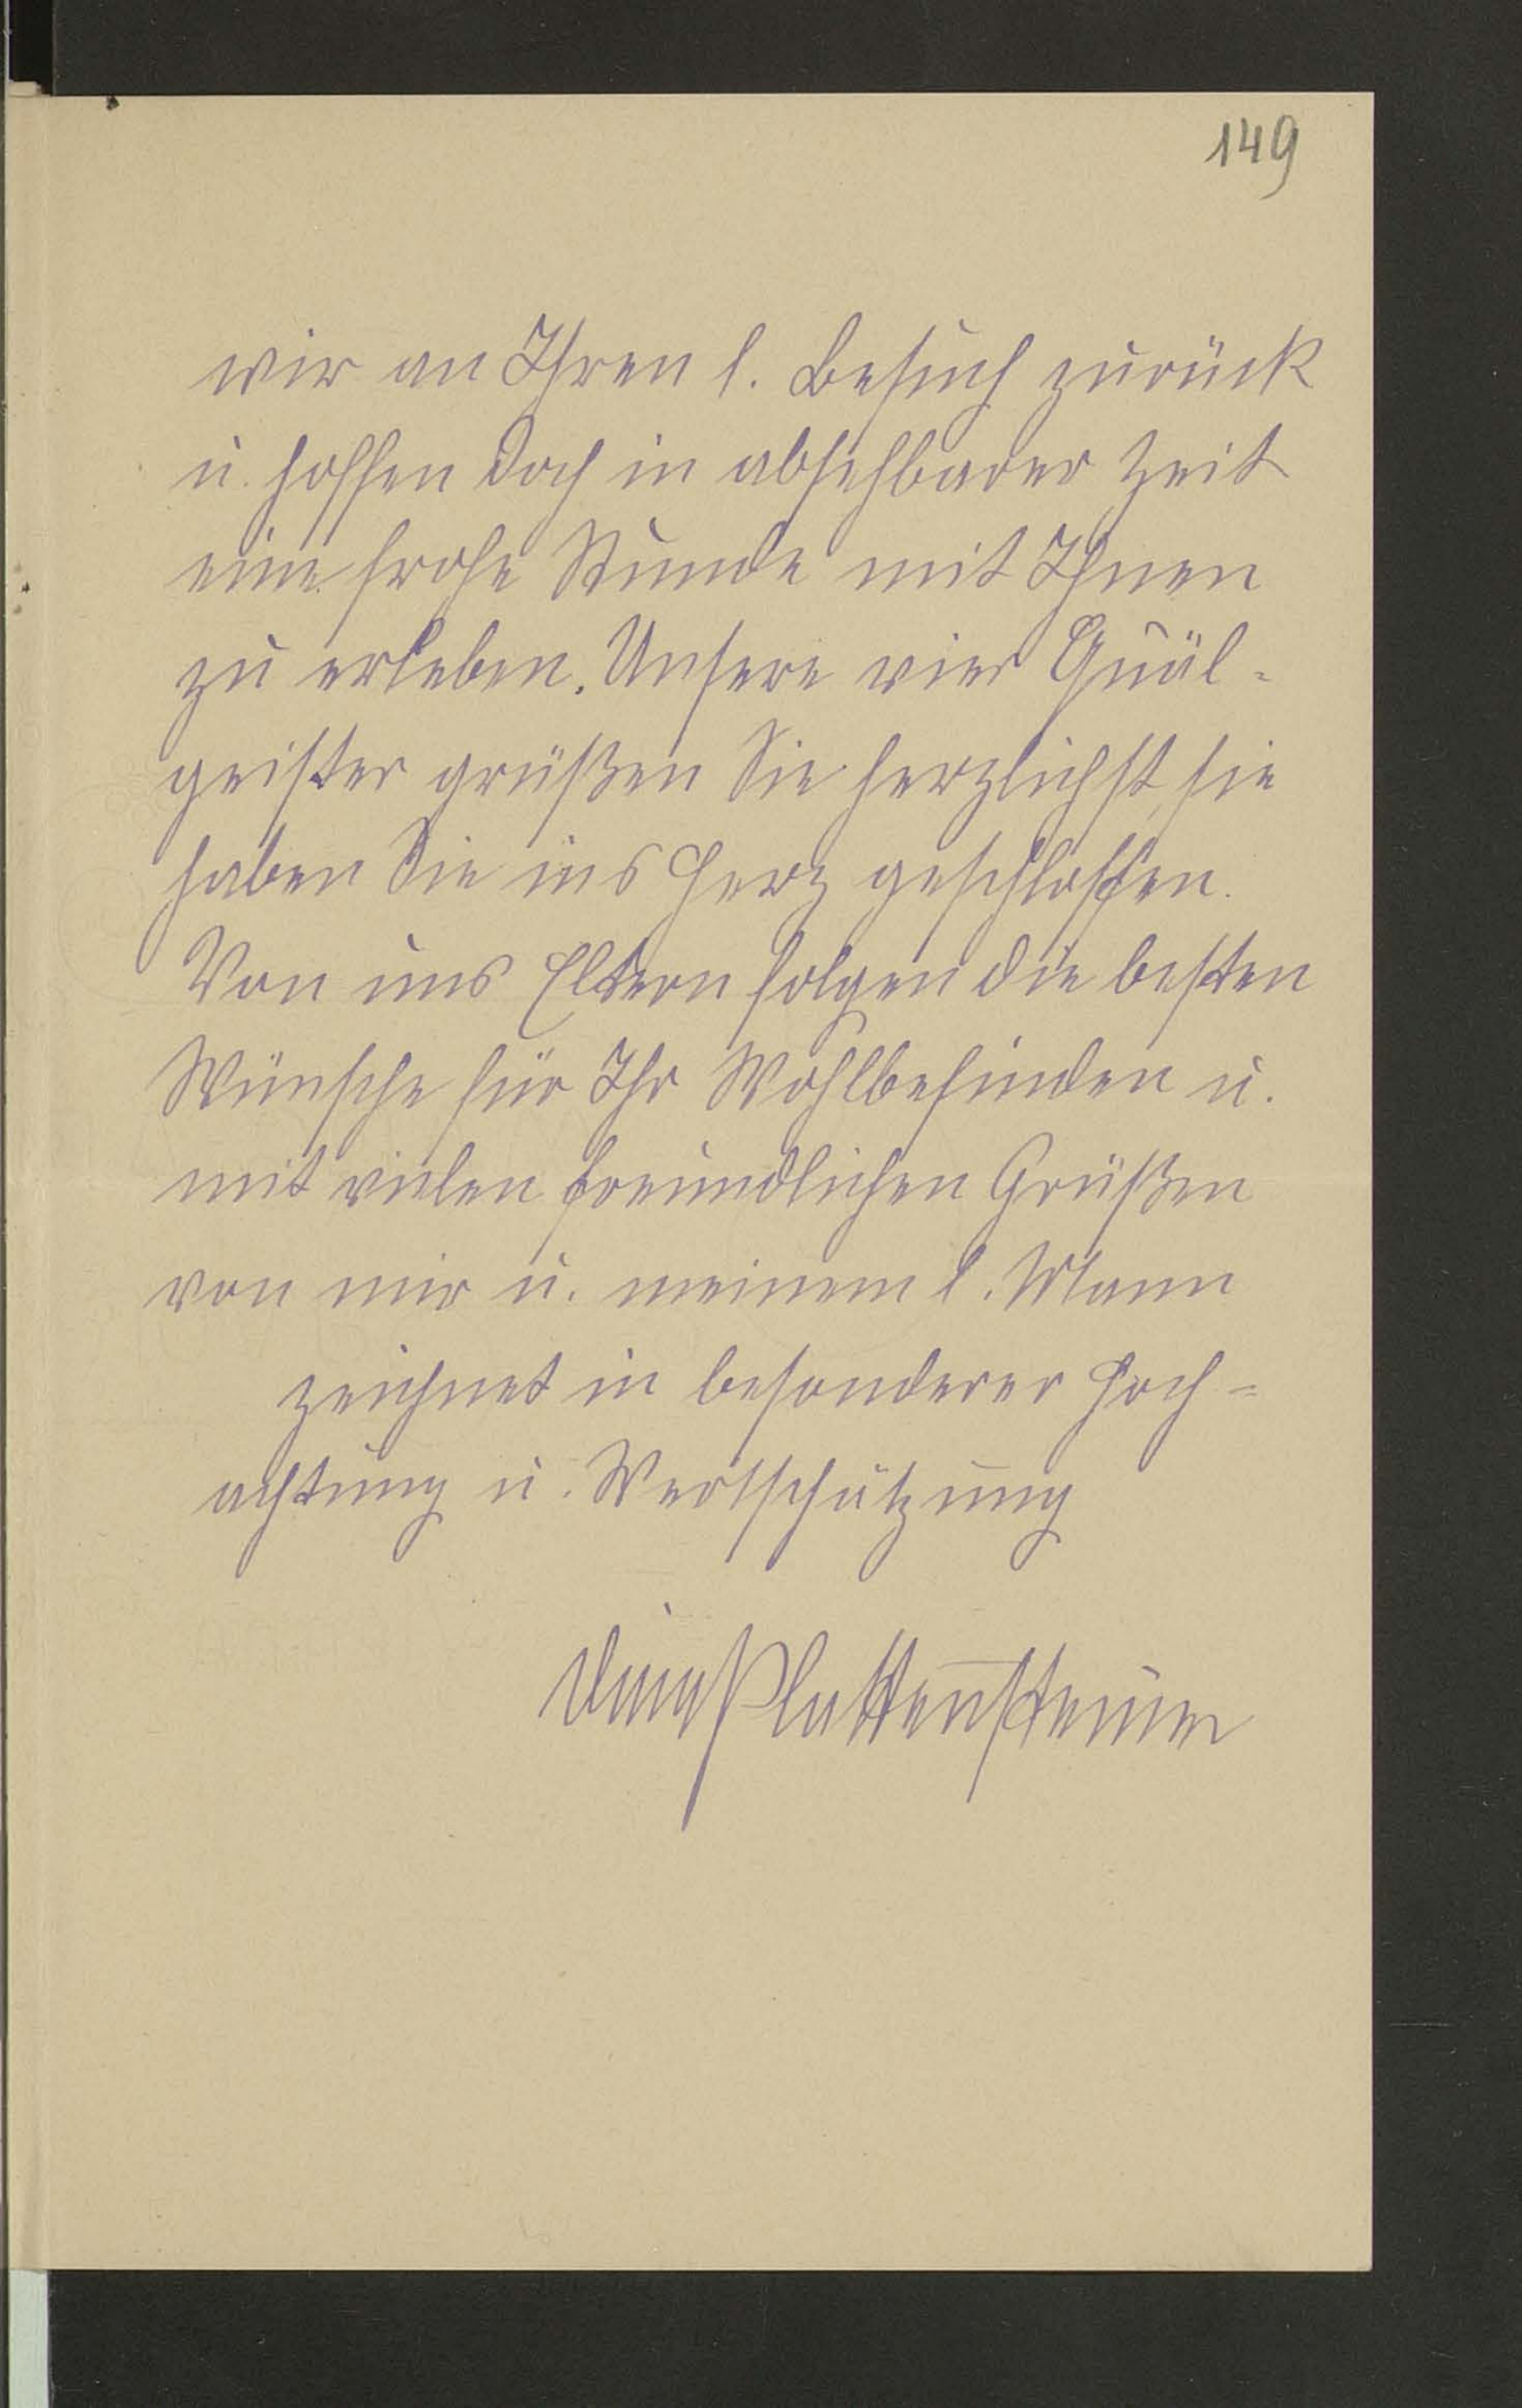 149
wir an Ihren l. Besuch zurück
u. hoffen doch in absehbarer Zeit
eine frohe Stunde mit Ihnen
zu erleben. Unsere vier Quäl-
geister grüßen Sie herzlichst, sie
haben Sie ins Herz geschlossen.
Von uns Eltern folgen die besten
Wünsche für Ihr Wohlbefinden u.
mit vielen freundlichen Grüßen
von mir u. meinem l. Mann
zeichnet in besonderer Hoch-
achtung u. Wertschätzung
Plattensteiner